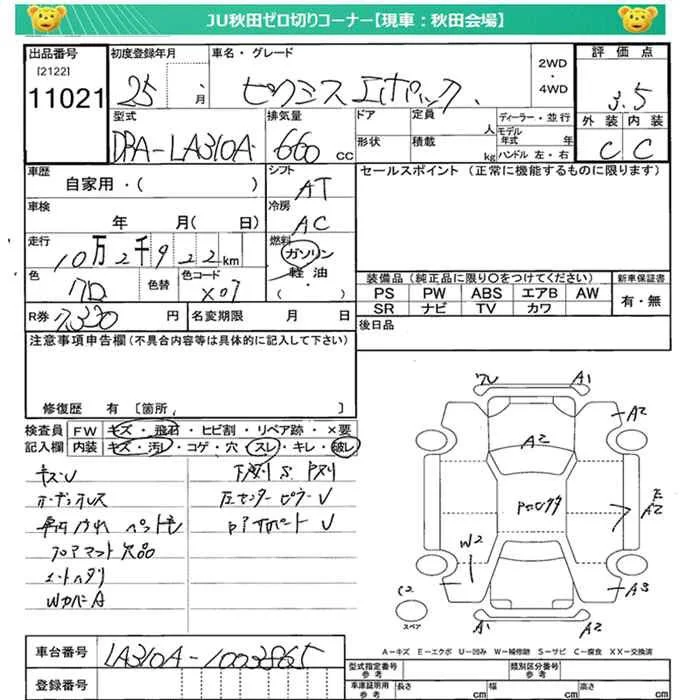 JU秋田ゼロ切りコーナー【現車：秋田会場】
出品番号
[2122]
11021
初度登録年月
25 、 月
車名・グレード
ピクシス エポック、
2WD
・
4WD
評価点
3.5
外装 内装
C C
型式
DBA-LA310A
排気量
660 CC
ドア
定員
人
形状
積載
kg
ディーラー・並行
モデル
年式 年
ハンドル 左・右
車歴
自家用・( )
シフト
AT
セールスポイント (正常に機能するものに限ります)
車検
年 月( 日)
冷房
AC
走行
10万2千922km
燃料
ガソリン
・
軽油
・
( )
色
クロ
色替
色コード
X07
装備品 (純正品に限り〇をつけてください)
新車保証書
PS PW ABS エアB AW
有・無
SR ナビ TV カワ
R券 7,330 円
名変期限 月 日
後日品
注意事項申告欄(不具合内容等は具体的に記入して下さい)
修復歴 有 [箇所, ]
検査員
記入欄
FW キズ・飛石・ヒビ割・リペア跡・×要
内装 キズ・汚レ・コゲ・穴・スレ・キレ・破レ
キズU
フロアマット欠品
WカバーA
左センターピラーU
U A1
A2
A2
A2
W2
A3
C2
スペア
A1 A2
A－キズ E－エクボ U－凹み W－補修跡 S－サビ C－腐食 XX－交換済
車台番号
LA310A-1003865
登録番号
型式指定番号
参考
類別区分番号
参考
車庫証明用
参考
長さ cm 幅 cm 高さ cm